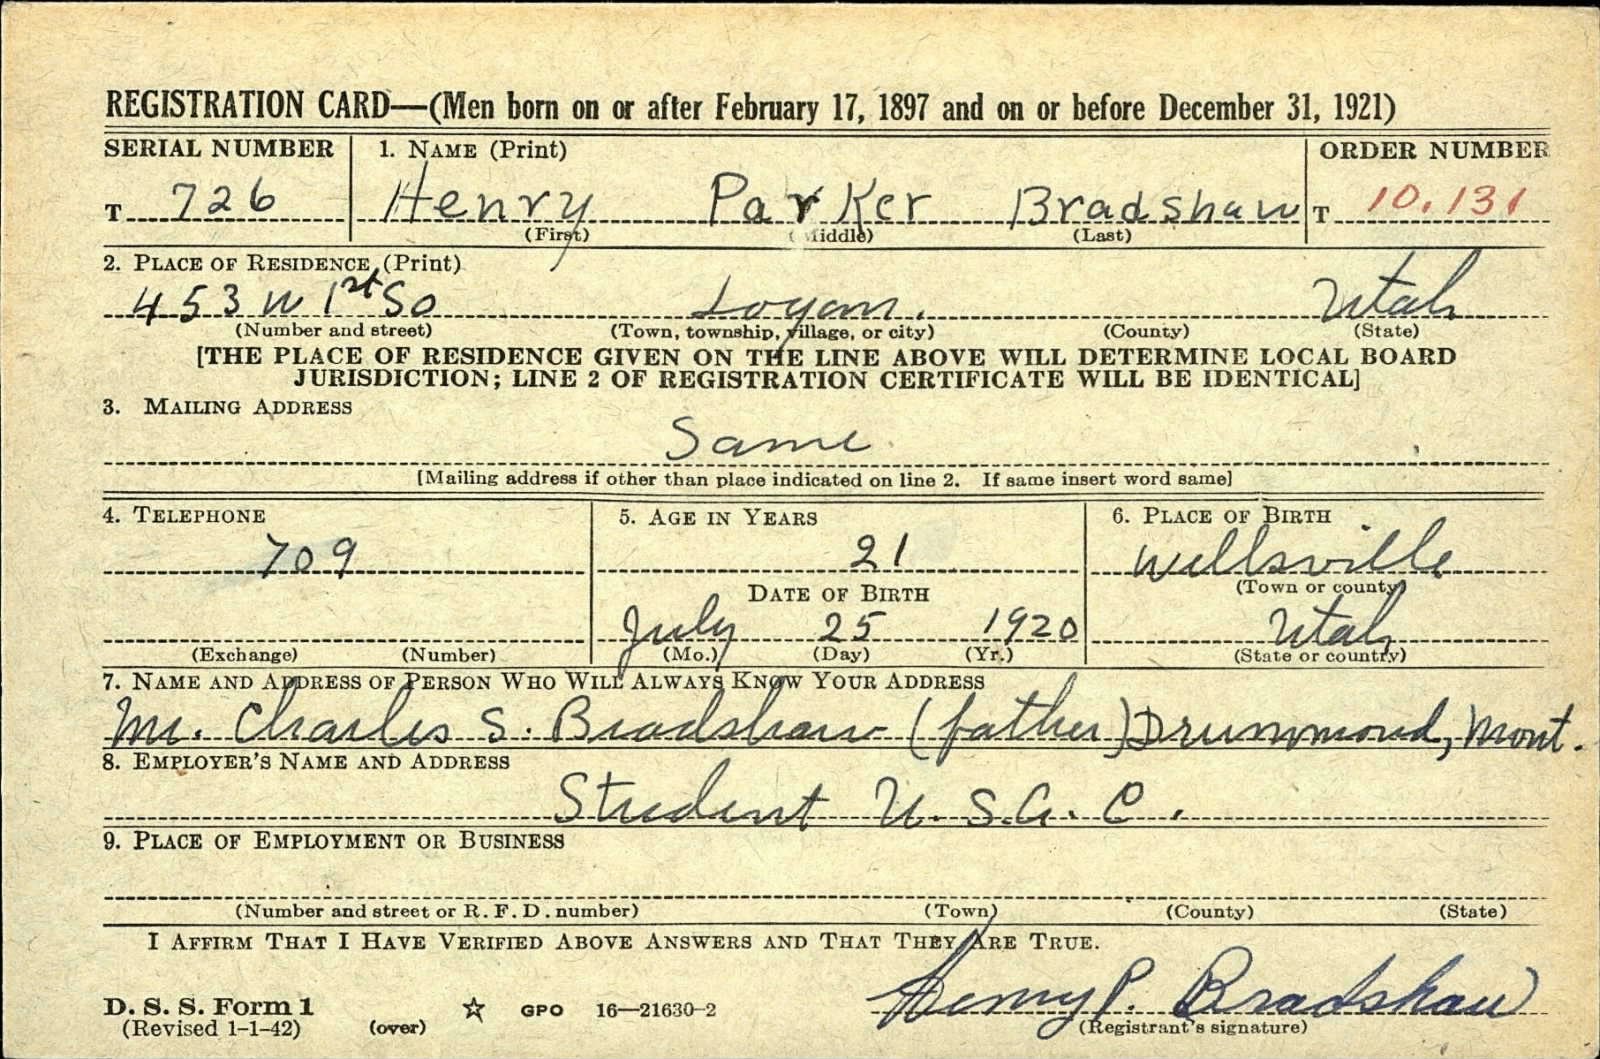 REGISTRATION CARD—(Men born on or after February 17, 1897 and on or before December 31, 1921)
SERIAL NUMBER 1. NAME (Print) ORDER NUMBER
T 726 Henry Parker Bradshaw T 10,131
(First) (Middle) (Last)
2. PLACE OF RESIDENCE (Print)
453 W 1st So Logan. Utah
(Number and street) (Town, township, village, or city) (County) (State)
[THE PLACE OF RESIDENCE GIVEN ON THE LINE ABOVE WILL DETERMINE LOCAL BOARD
JURISDICTION; LINE 2 OF REGISTRATION CERTIFICATE WILL BE IDENTICAL]
3. MAILING ADDRESS
Same
[Mailing address if other than place indicated on line 2. If same insert word same]
4. TELEPHONE 5. AGE IN YEARS 6. PLACE OF BIRTH
709 21 Wellsville
DATE OF BIRTH (Town or county)
July 25 1920 Utah
(Exchange) (Number) (Mo.) (Day) (Yr.) (State or country)
7. NAME AND ADDRESS OF PERSON WHO WILL ALWAYS KNOW YOUR ADDRESS
Mr. Charles S. Bradshaw (father) Drummond, Mont.
8. EMPLOYER'S NAME AND ADDRESS
Student U.S.A.C.
9. PLACE OF EMPLOYMENT OR BUSINESS
(Number and street or R. F. D. number) (Town) (County) (State)
I AFFIRM THAT I HAVE VERIFIED ABOVE ANSWERS AND THAT THEY ARE TRUE.
Henry P. Bradshaw
D. S. S. Form 1 ☆ GPO 16—21630-2
(Revised 1-1-42) (over) (Registrant's signature)